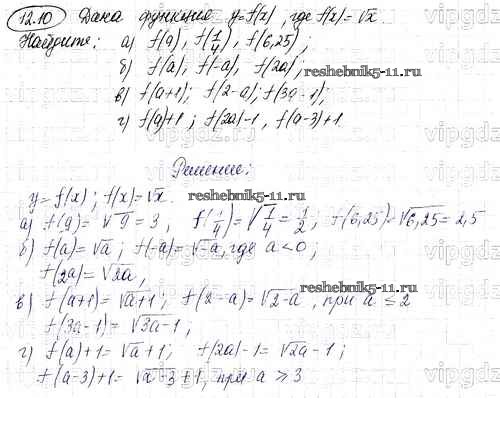 12.10 Дана функция y=f(x), где f(x)=√x.
Найдите: а) f(9), f(1/4), f(6,25);
б) f(a), f(-a), f(2a);
reshebnik5-11.ru
в) f(a+1); f(2-a); f(3a-1);
г) f(a)+1; f(2a)-1, f(a-3)+1
Решение:
y=f(x); f(x)=√x.
reshebnik5-11.ru
а) f(9)=√9=3, f(1/4)=√1/4=1/2; f(6,25)=√6,25=2,5
б) f(a)=√a; f(-a)=√-a, где a<0;
f(2a)=√2a,
reshebnik5-11.ru
в) f(a+1)=√a+1; f(2-a)=√2-a, при a≤2
f(3a-1)=√3a-1;
г) f(a)+1=√a+1; f(2a)-1=√2a-1;
f(a-3)+1=√a-3+1, при a≥3
vipgdz.ru